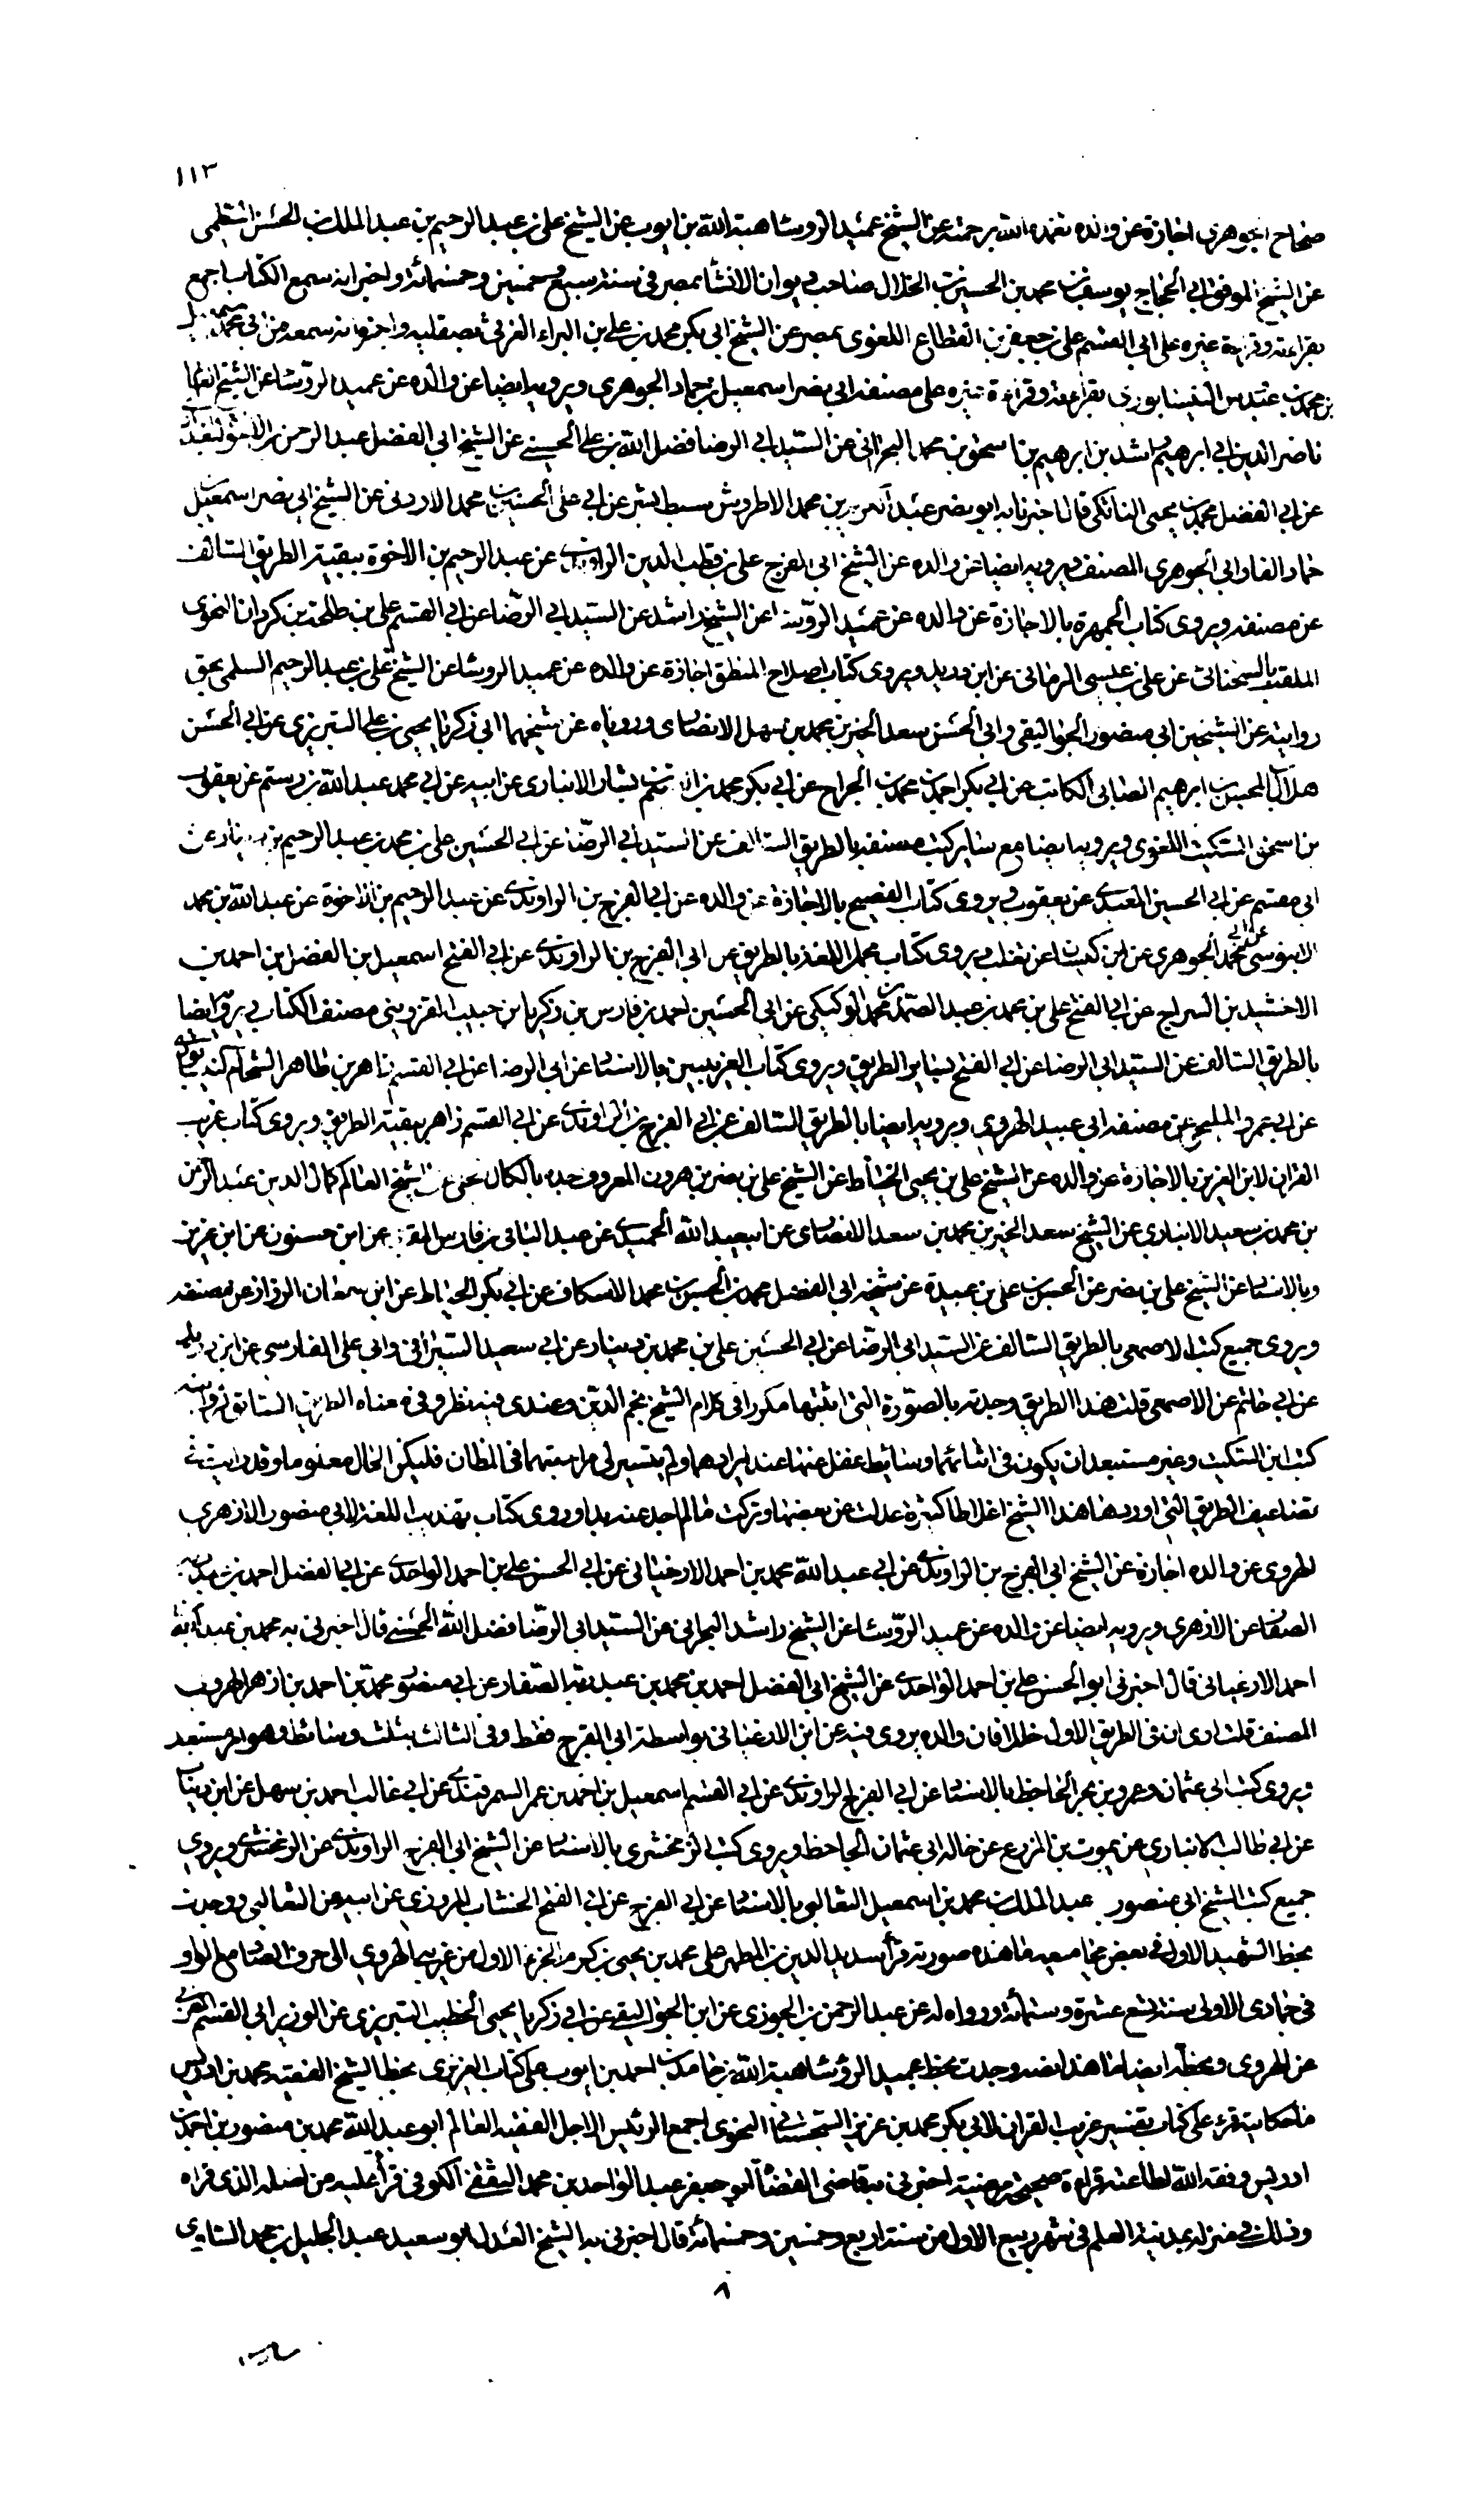 ١١٣
صحاح الجوهري اجازة عن والده تغمده الله برحمته عن الشيخ عميد الرؤسا هبة الله بن ايوب عن الشيخ علي بن عبد الرحيم بن عبد الملك بن الحسن السلمي
عن الشيخ الموفق ابي الحجاج يوسف بن محمد بن الحسين بن الخلال صاحب ديوان الانشا بمصر في سنة سبع وخمسين وخمسمائة واخبر انه سمع الكتاب اجمع
بقراءته وقراءة غيره على ابي القسم علي بن جعفر بن القطاع اللغوي بمصر عن الشيخ ابي بكر محمد بن علي بن البراء الغربي بصقلية واخبره انه سمعه من ابي محمد اسمعيل
بن محمد بن عبدوس النيسابوري بقراءته وقراءة غيره على مصنفه ابي نصر اسمعيل بن حماد الجوهري ويرويه ايضا عن والده عن عميد الرؤسا عن الشيخ الفقيه
ناصر الدين ابي ابراهيم راشد بن ابراهيم بن اسحق بن محمد البحراني عن السيد ابي الرضا فضل الله بن علي الحسيني عن الشيخ ابي الفضل عبد الرحمن بن الاخوة البغدادي
عن ابي الفضل محمد بن يحيى الناتكي قال اخبرنا به ابو نصر عبد العزيز بن محمد الاطروش سبط بشر عن ابي علي الحسين بن محمد الاردني عن الشيخ ابي نصر اسمعيل
حماد الفارابي الجوهري المصنف ويرويه ايضا عن والده عن الشيخ ابي الفرج علي بن قطب الدين الراوندي عن عبد الرحيم بن الاخوة ببقية الطريق السالف
عن مصنفه ويروي كتاب الجمهرة بالاجازة عن والده عن عميد الرؤسا عن الشيخ راشد عن السيد ابي الرضا عن ابي القسم علي بن طلحة بن كردان النحوي
الملقب بالسحناتي عن علي بن عيسى الرماني عن ابن دريد ويروي كتاب اصلاح المنطق اجازة عن والده عن عميد الرؤسا عن الشيخ علي بن عبد الرحيم السلمي بحق
روايته عن الشيخين ابي منصور الجواليقي وابي الحسن سعد الخير بن محمد بن سهل الانصاري ورروياه عن شيخهما ابي زكريا يحيى بن علي التبريزي عن ابي الحسن
هلال المحسن بن ابرهيم الصابي الكاتب عن ابي بكر احمد بن محمد بن الجراح عن ابي بكر محمد بن القسم بشار الانباري عن ابيه عن ابي محمد عبد الله بن رستم عن يعقوب
بن اسحق السكيت اللغوي ويرويه ايضا مع ساير كتب مصنفه بالطريق السالف عن السيد ابي الرضا عن ابي الحسين علي بن محمد بن عبد الرحيم بن دينار عن
ابي مقسم عن ابي الحسين المعبدي عن يعقوب ويروي كتاب الفصيح بالاجازة عن والده عن ابي الفرج بن الراوندي عن عبد الرحيم بن الاخوة عن عبد الله بن محمد
الابنوسي عن ابي محمد الجوهري عن ابن كيسان عن ثعلب ويروي كتاب مجمل اللغة بالطريق عن ابي الفرج بن الراوندي عن ابي الفتح اسمعيل بن الفضل بن احمد بن
الاخشيد بن السراج عن ابي الفتح علي بن محمد بن عبد الصمد بن محمد الوكيكي عن ابي الحسين احمد بن فارس بن زكريا بن حبيب القزويني مصنف الكتاب ويرويه ايضا
بالطريق السالف عن السيد ابي الرضا عن ابي الفتح بساير الطريق ويروي كتاب الغريبين بالاسناد عن ابي الرضا عن ابي القسم زاهر بن طاهر الشحامي النيسابوري
عن ابي عمرو المليحي عن مصنفه ابي عبيد الهروي ويرويه ايضا بالطريق السالف عن ابي الفرج بن الراوندي عن ابي القسم زاهر ببقية الطريق ويروي كتاب غريب
القران لابن العزيز بالاجازة عن والده عن الشيخ علي بن يحيى الخياط عن الشيخ علي بن نصر بن هرون المعروف جده بالكال عن الشيخ العالم كمال الدين عبد الرحمن
بن محمد بن سعيد الانباري عن الشيخ سعد الخير بن محمد بن سعد الانصاري عن ابي عبد الله الحميدي عن عبد الباقي بن فارس المقري عن ابن حسنون عن ابن عزيز
وبالاسناد عن الشيخ علي بن نصر عن الحسن بن علي بن عبيدة عن شيخه ابي الفضل محمد بن الحسين بن محمد الاسكاف عن ابي بكر الخياط عن ابن سمعان الرزاز عن مصنفه
ويروي جميع كتب الاصمعي بالطريق السالف عن السيد ابي الرضا عن ابي الحسين علي بن محمد بن دينار عن ابي سعيد السيرافي وابي علي الفارسي عن ابن دريد
عن ابي حاتم عن الاصمعي قلت هذا الطريق وجدته بالصورة التي اثبتها مكررا في كلام الشيخ نجم الدين وعندي فيه نظر وفي معناه الطريق السابق لرواية
كتب ابن السكيت وغير مستبعد ان يكون في اثنائهما وسائط غفل عنها عند ايرادهما ولم يتيسر لي مراجعتهما في المظان فليكن الحال معلوما وقد رايت في
تضاعيف الطريق التي اوردها هذا الشيخ اغلاطا كثيرة عدلت عن بعضها وتركت مالم اجد عنه بدا وروى كتاب تهذيب اللغة لابي منصور الازهري
الهروي عن والده اجازة عن الشيخ ابي الفرج بن الراوندي عن ابي عبد الله محمد بن احمد الارغياني عن ابي الحسن علي بن احمد الواحدي عن ابي الفضل احمد بن
الصفار عن الازهري ويرويه ايضا عن والده عن عميد الرؤسا عن الشيخ راشد البحراني عن السيد ابي الرضا فضل الله الحسني قال اخبرني به محمد بن عبد الله
احمد الارغياني قال اخبرني ابو الحسن علي بن احمد الواحدي عن الشيخ ابي الفضل احمد بن محمد بن عبد الله الصفار عن ابي منصور محمد بن احمد بن ازهر الهروي
المصنف قلت ارى ان في الطريق الاول خللا فان والده يروي فيه عن ابن الارغياني بواسطة ابي الفرج فقط وفي الثالث بثلث وسائط وهو امر مستبعد
ويروي كتب ابي عثمان وعمرو بن بحر الجاحظ بالاسناد عن ابي الفرج الراوندي عن ابي القسم اسمعيل بن احمد بن عمر السمرقندي عن ابي غالب احمد بن سهل عن ابن دينار
عن ابي طالب الانباري عن يموت بن المزرع عن خاله ابي عثمان الجاحظ ويروي كتب الزمخشري بالاسناد عن الشيخ ابي الفرج الراوندي عن الزمخشري ويروي
جميع كتب الشيخ ابي منصور عبد الملك بن محمد بن اسمعيل الثعالبي بالاسناد عن ابي الفرج عن ابي الفتح الخشاب المروزي عن ابيه عن الثعالبي ووجدت
بخط الشهيد الاول في بعض مجاميعه ما هذه صورته قرأ سديد الدين بن المطهر على محمد بن يحيى بن كرم الجزء الاول من غريب الهروي الى حرف الصاد مع الواو
في جمادى الاولى سنة تسع عشرة وستمائة ورواه له عن عبد الرحمن بن الجوزي عن ابن الجواليقي عن ابي زكريا يحيى الخطيب التبريزي عن الوزير ابي القسم المغربي
عن الهروي وبخطه ايضا ما هذا نصه وجدت بخط عميد الرؤسا هبة الله بن حامد بن احمد بن ايوب على كتاب العزيزي بخط الشيخ الفقيه محمد بن ادريس
ما حكايته قرء علي كتاب تفسير غريب القران لابي بكر محمد بن عزيز السجستاني النحوي اجمع الرئيس الاجل الفقيه العالم ابو عبد الله محمد بن منصور بن احمد بن
ادريس وفقه الله لطاعته قراءة صحيحة مرضية اخبرني به قاضي القضاة ابو جعفر عبد الواحد بن محمد الثقفي الكوفي قرأ عليه من اصله الذي قراه
وذلك في منزله بمدينة العلم في شهر ربيع الاول من سنة اربع وخمسين وخمسمائة قال اخبرني به الشيخ العدل ابو سعيد عبد الجليل بن محمد الساوي
٨